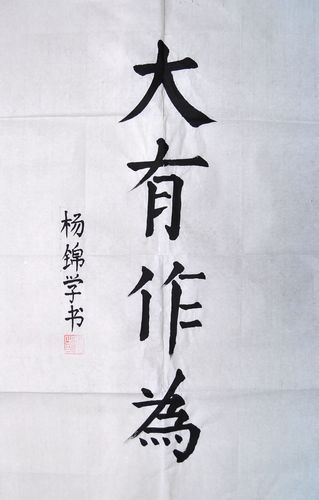 大有作為
杨锦学书